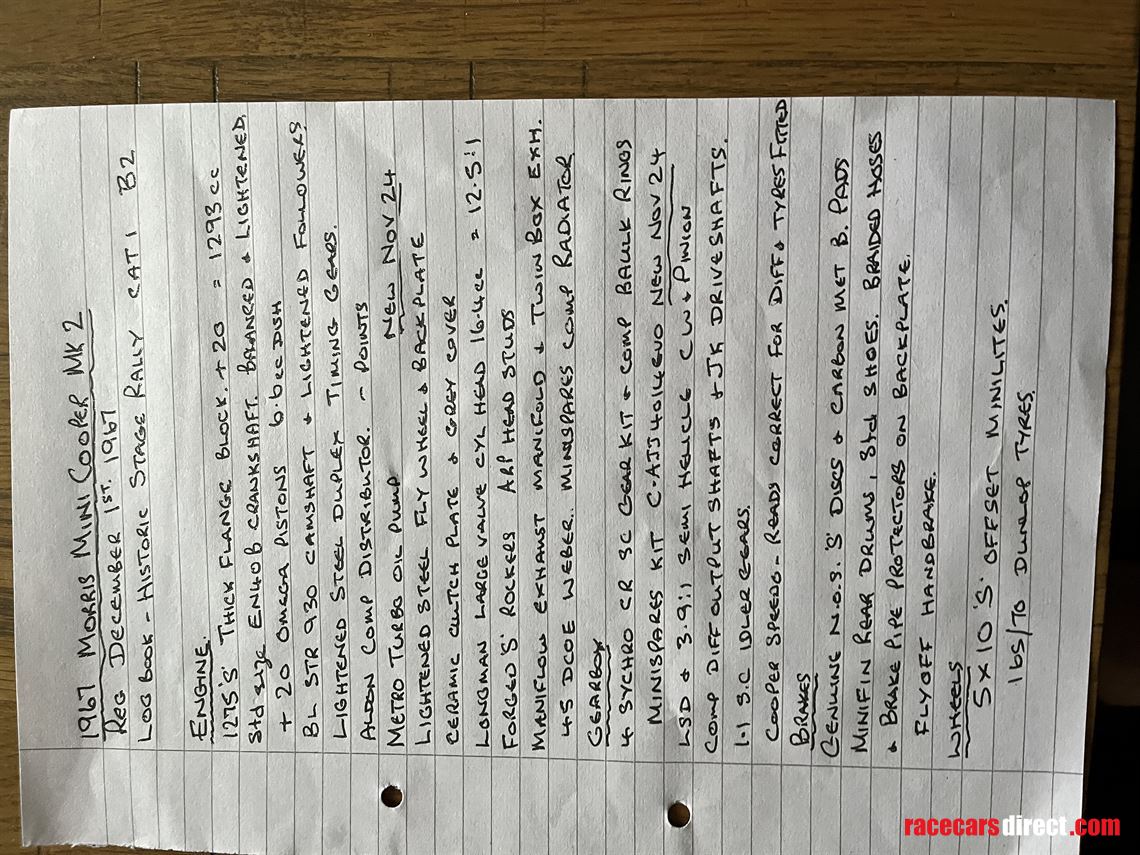 1967 MORRIS MINI COOPER MK2
REG DECEMBER 1ST. 1967
LOG BOOK - HISTORIC STAGE RALLY CAT 1 B2
ENGINE.
1275 'S' THICK FLANGE BLOCK. + 20 = 1293cc
Std size EN40B CRANKSHAFT. BALANCED & LIGHTENED.
+ 20 OMEGA PISTONS 6.6cc DISH
BL STR 930 CAMSHAFT & LIGHTENED FOLLOWERS
LIGHTENED STEEL DUPLEX TIMING GEARS.
ALDON COMP DISTRIBUTOR. - POINTS
METRO TURBO OIL PUMP NEW NOV 24
LIGHTENED STEEL FLYWHEEL & BACKPLATE
CERAMIC CLUTCH PLATE & GREY COVER
LONGMAN LARGE VALVE CYL HEAD 16.4cc = 12.5:1
FORGED 'S' ROCKERS ARP HEAD STUDS
MANIFLOW EXHAUST MANIFOLD & TWIN BOX EXH.
45 DCOE WEBER. MINISPARES COMP RADIATOR
GEARBOX
4 SYCHRO CR SC GEAR KIT & COMP BAULK RINGS
MINISPARES KIT C-AJJ4014EVO NEW NOV 24
LSD & 3.9:1 SEMI HELICLE CW & PINION
COMP DIFF OUTPUT SHAFTS & JK DRIVESHAFTS.
1.1 S.C IDLER GEARS.
COOPER SPEEDO - READS CORRECT FOR DIFF & TYRES FITTED
BRAKES
GENUINE N.O.S. 'S' DISCS & CARBON MET B. PADS
MINIFIN REAR DRUMS, Std SHOES. BRAIDED HOSES
& BRAKE PIPE PROTECTORS ON BACKPLATE.
FLYOFF HANDBRAKE.
WHEELS
5 X 10 'S' OFFSET MINILITES.
165/70 DUNLOP TYRES.
racecarsdirect.com